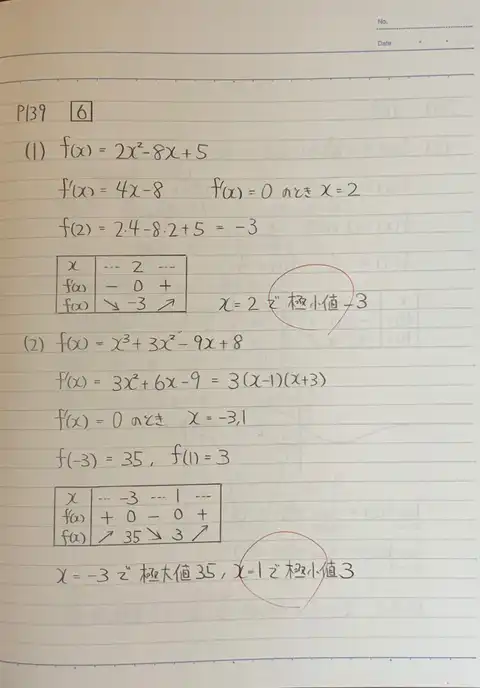 No.
Date ・ ・
P139 6
(1) f(x) = 2x²-8x+5
f'(x) = 4x-8 f'(x) = 0 のとき x = 2
f(2) = 2・4-8・2+5 = -3
x ... 2 ...
f'(x) - 0 +
f(x) ↘ -3 ↗
x = 2 で 極小値 -3
(2) f(x) = x³+3x²-9x+8
f'(x) = 3x²+6x-9 = 3(x-1)(x+3)
f'(x) = 0 のとき x = -3,1
f(-3) = 35, f(1) = 3
x ... -3 ... 1 ...
f'(x) + 0 - 0 +
f(x) ↗ 35 ↘ 3 ↗
x = -3 で 極大値 35, x=1 で 極小値 3